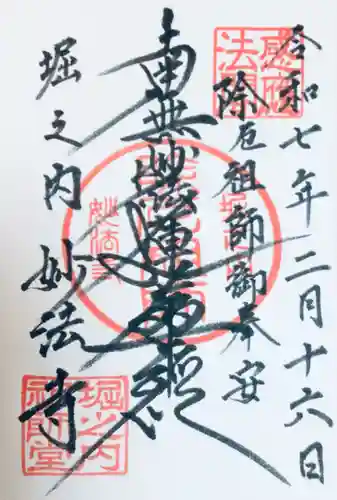 令和七年二月十六日
除厄祖師御奉安
南無妙法蓮華経
堀之内妙法寺
堀之内
祖師堂